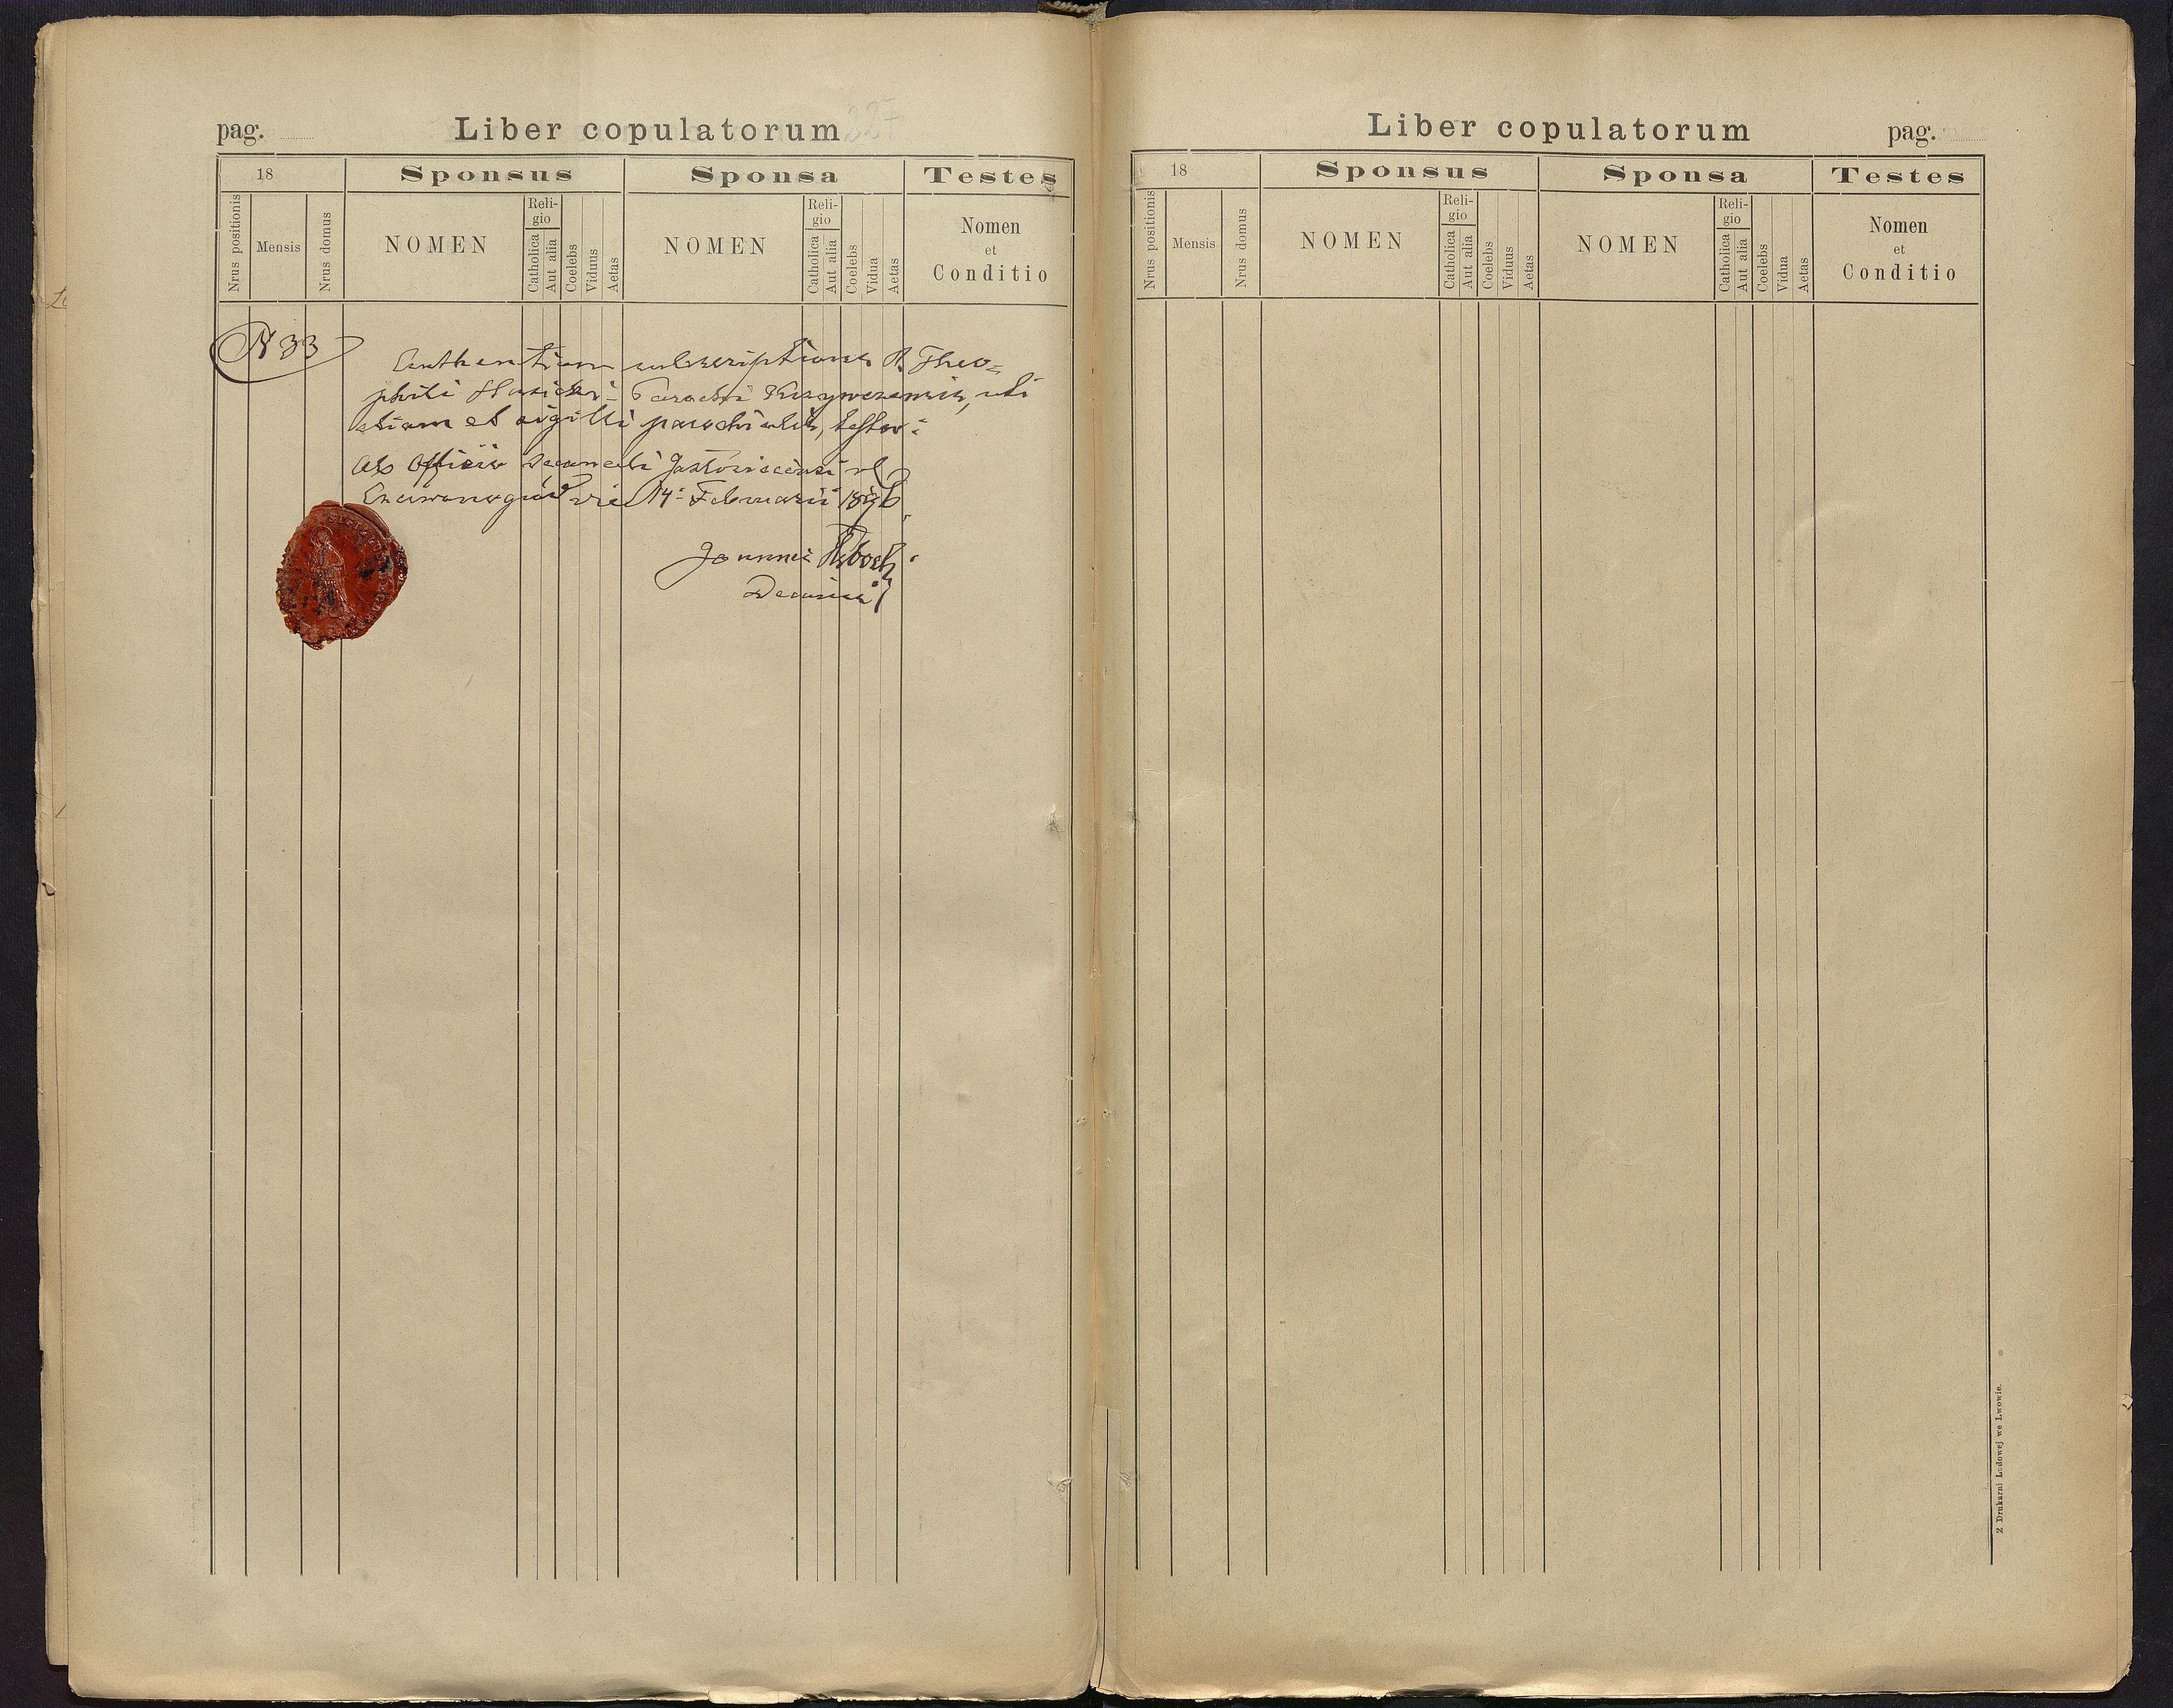 pag.
Liber copulatorum 227
18
Sponsus
Sponsa
Testes
Nrus positionis
Mensis
Nrus domus
NOMEN
Religio
Catholica
Aut alia
Coelebs
Viduus
Aetas
NOMEN
Religio
Catholica
Aut alia
Coelebs
Vidua
Aetas
Nomen
et
Conditio
N 33
subscriptionis R. Theo=
phili Parochi uti
etiam et sigilli parochialis, testor:
Ab Officio Decanali
die 14: Februarii 1896.
Joannes
Decanus
Liber copulatorum
pag.
18
Sponsus
Sponsa
Testes
Nrus positionis
Mensis
Nrus domus
NOMEN
Religio
Catholica
Aut alia
Coelebs
Viduus
Aetas
NOMEN
Religio
Catholica
Aut alia
Coelebs
Vidua
Aetas
Nomen
et
Conditio
Z Drukarni Ludowej we Lwowie.